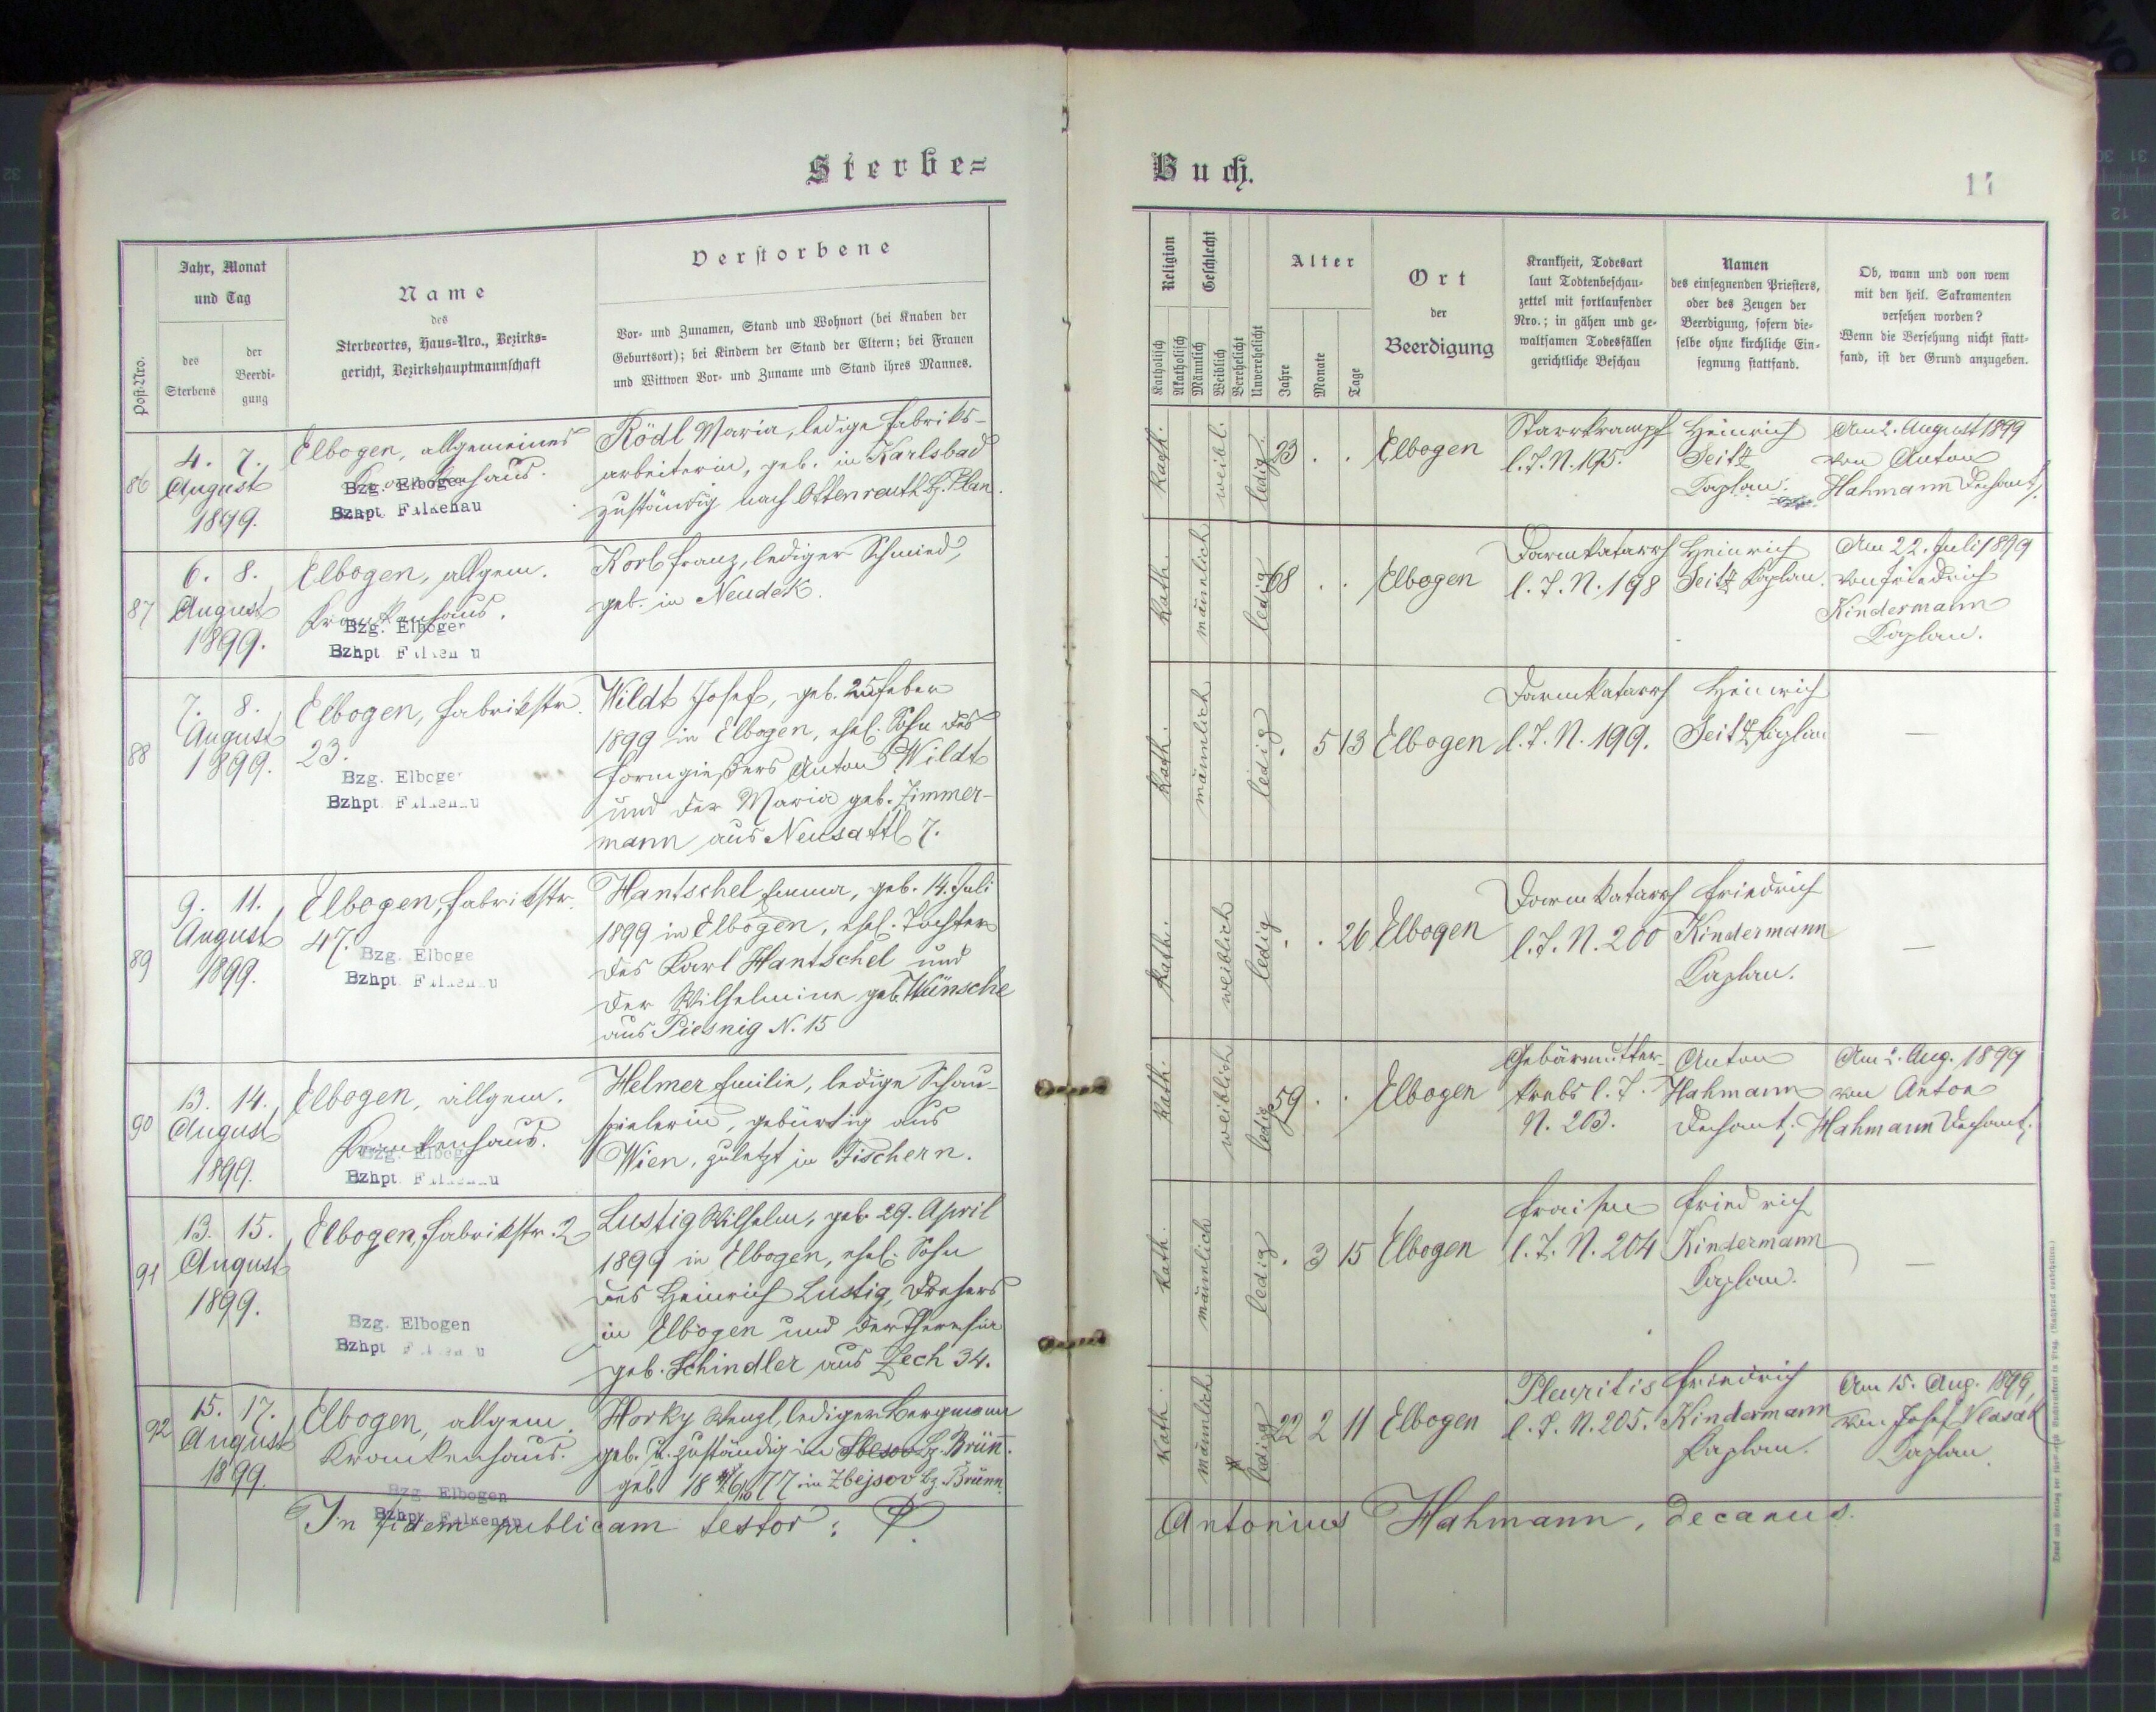 Sterbe=
Post-Nro.
Jahr, Monat
und Tag
des
Sterbens
der
Beerdi-
gung
Name
des
Sterbeortes, Haus-Nro., Bezirks=
gericht, Bezirkshauptmannschaft
Verstorbene
Vor- und Zunamen, Stand und Wohnort (bei Knaben der
Geburtsort); bei Kindern der Stand der Eltern; bei Frauen
und Wittwen Vor- und Zuname und Stand ihres Mannes.
86
4. 7.
August
1899.
Elbogen, allgemeines
Krankenhaus.
Bzg. Elbogen
Bzhpt Falkenau
Rödl Maria, ledige Fabriks-
arbeiterin, geb. in Karlsbad
zuständig nach Ottenreuth Bz. Plan.
87
6. 8.
August
1899.
Elbogen, allgem.
Krankenhaus.
Bzg. Elbogen
Bzhpt Falkenau
Korb Franz, lediger Schmied,
geb. in Neudek.
88
7. 8.
August
1899.
Elbogen, Fabrikstr.
23.
Bzg. Elbogen
Bzhpt Falkenau
Wildt Josef, geb. 25. Feber
1899 in Elbogen, ehel. Sohn des
Formgießers Anton Wildt
und der Maria geb. Zimmer-
mann aus Neusattl 7.
89
9. 11.
August
1899.
Elbogen, Fabrikstr.
47.
Bzg. Elboge
Bzhpt Falkenau
Hantschel Emma, geb. 14. Juli
1899 in Elbogen, ehel. Tochter
des Karl Hantschel und
der Wilhelmine geb. Wünsche
aus Piesnig N. 15
90
13. 14.
August
1899.
Elbogen, allgem.
Krankenhaus.
Bzg. Elbogen
Bzhpt Falkenau
Helmer Emilie, ledige Schau-
spielerin, gebürtig aus
Wien, zuletzt in Fischern.
91
13. 15.
August
1899.
Elbogen, Fabrikstr. 2
Bzg. Elbogen
Bzhpt Falkenau
Lustig Wilhelm, geb. 29. April
1899 in Elbogen, ehel. Sohn
des Heinrich Lustig, Drehers
in Elbogen und der Theresia
geb. Schindler aus Zech 34.
92
15. 17.
August
1899.
Elbogen, allgem.
Krankenhaus.
Bzg. Elbogen
Bzhpt Falkenau
Horky Wenzl, lediger Bergmann
geb. u. zuständig in Bz. Brünn.
geb. 18 77 in Zbejsov Bz. Brünn.
In fidem publicam testor: P.
Buch.
Religion
Katholisch
Akatholisch
Geschlecht
Männlich
Weiblich
Verehelicht
Unverehelicht
Alter
Jahre
Monate
Tage
Ort
der
Beerdigung
Krankheit, Todesart
laut Todtenbeschau-
zettel mit fortlaufender
Nro.; in gähen und ge-
waltsamen Todesfällen
gerichtliche Beschau
Namen
des einsegnenden Priesters,
oder des Zeugen der
Beerdigung, sofern die-
selbe ohne kirchliche Ein-
segnung stattfand.
Ob, wann und von wem
mit den heil. Sakramenten
versehen worden?
Wenn die Versehung nicht statt-
fand, ist der Grund anzugeben.
kath. weibl. ledig 23 . . Elbogen
Starrkrampf
l. T. N. 195.
Heinrich
Seitz
Kaplan.
Am 2. August 1899
von Anton
Hahmann Dechant.
kath. männlich ledig 68 . . Elbogen
Darmkatarrh
l. T. N. 198
Heinrich
Seitz Kaplan.
Am 22. Juli 1899
von Friedrich
Kindermann
Kaplan.
kath. männlich ledig . 5 13 Elbogen
Darmkatarrh
l. T. N. 199.
Heinrich
Seitz Kaplan
—
kath. weiblich ledig . . 26 Elbogen
Darmkatarrh
l. T. N. 200
Friedrich
Kindermann
Kaplan.
—
kath. weiblich ledig 59 . . Elbogen
Gebärmutter-
krebs l. T.
N. 203.
Anton
Hahmann
Dechant,
Am 2. Aug. 1899
von Anton
Hahmann Dechant,
kath. männlich ledig . 3 15 Elbogen
Fraisen
l. T. N. 204
Friedrich
Kindermann
Kaplan.
—
kath. männlich ledig 22 2 11 Elbogen
Pleuritis
l. T. N. 205.
Friedrich
Kindermann
Kaplan.
Am 15. Aug. 1899,
von Josef Vlasak
Kaplan.
Antonius Hahmann, decanus.